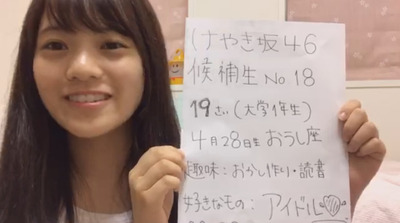 けやき坂46
候補生 No 18
19さい(大学1年生)
4月28日生 おうし座
趣味:おかし作り・読書
好きなもの:アイドル